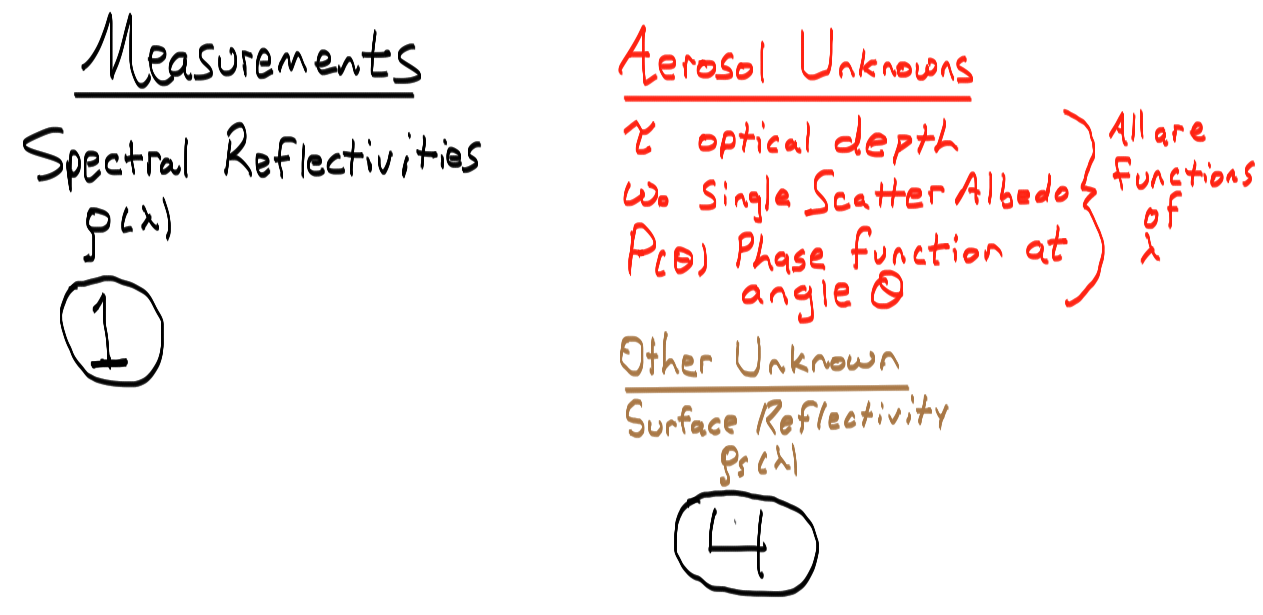 Measurements
Spectral Reflectivities
ρ(λ)
1
Aerosol Unknowns
τ optical depth
ω₀ Single Scatter Albedo
P(θ) Phase function at
angle θ
All are
functions
of
λ
Other Unknown
Surface Reflectivity
ρs(λ)
4